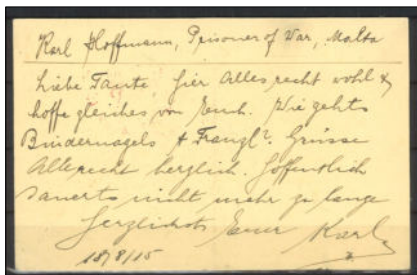 Karl Hoffmann, Prisoner of War, Malta
Liebe Tante, hier Alles recht wohl &
hoffe gleiches von Euch. Wie gehts
Bindernagels & Franzl? Grüsse
Alle recht herzlich. Hoffentlich
dauerts nicht mehr zu lange
Herzlichst Euer Karl
18/8/15